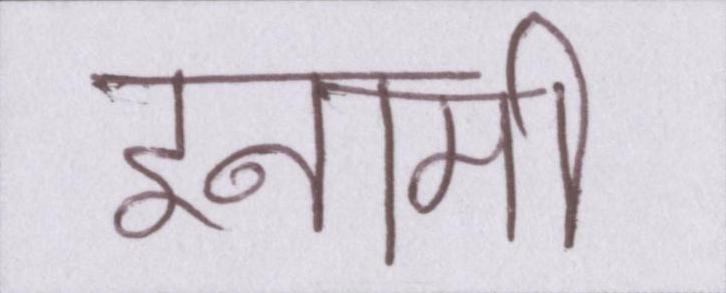 इनामी